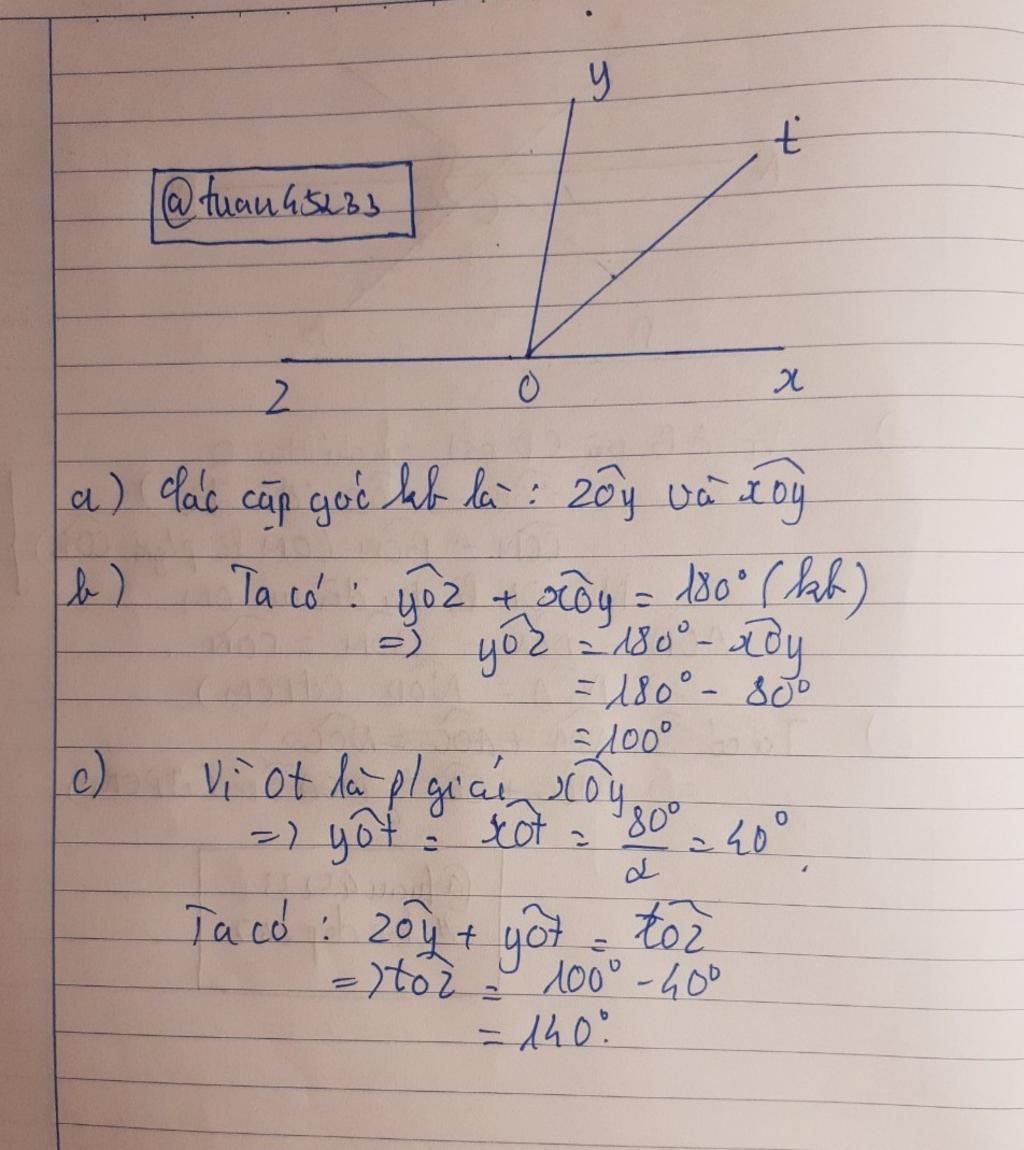 y
t
@tuan45233
z
O
x
a) Các cặp góc kb là : zÔy và xÔy
b) Ta có : yÔz + xÔy = 180° (kb)
=> yÔz = 180° - xÔy
= 180° - 80°
= 100°
c) Vì Ot là p/giác xÔy
=> yÔt = xÔt = 80°/2 = 40°.
Ta có : zÔy + yÔt = tÔz
=> tÔz = 100° - 40°
= 140°.